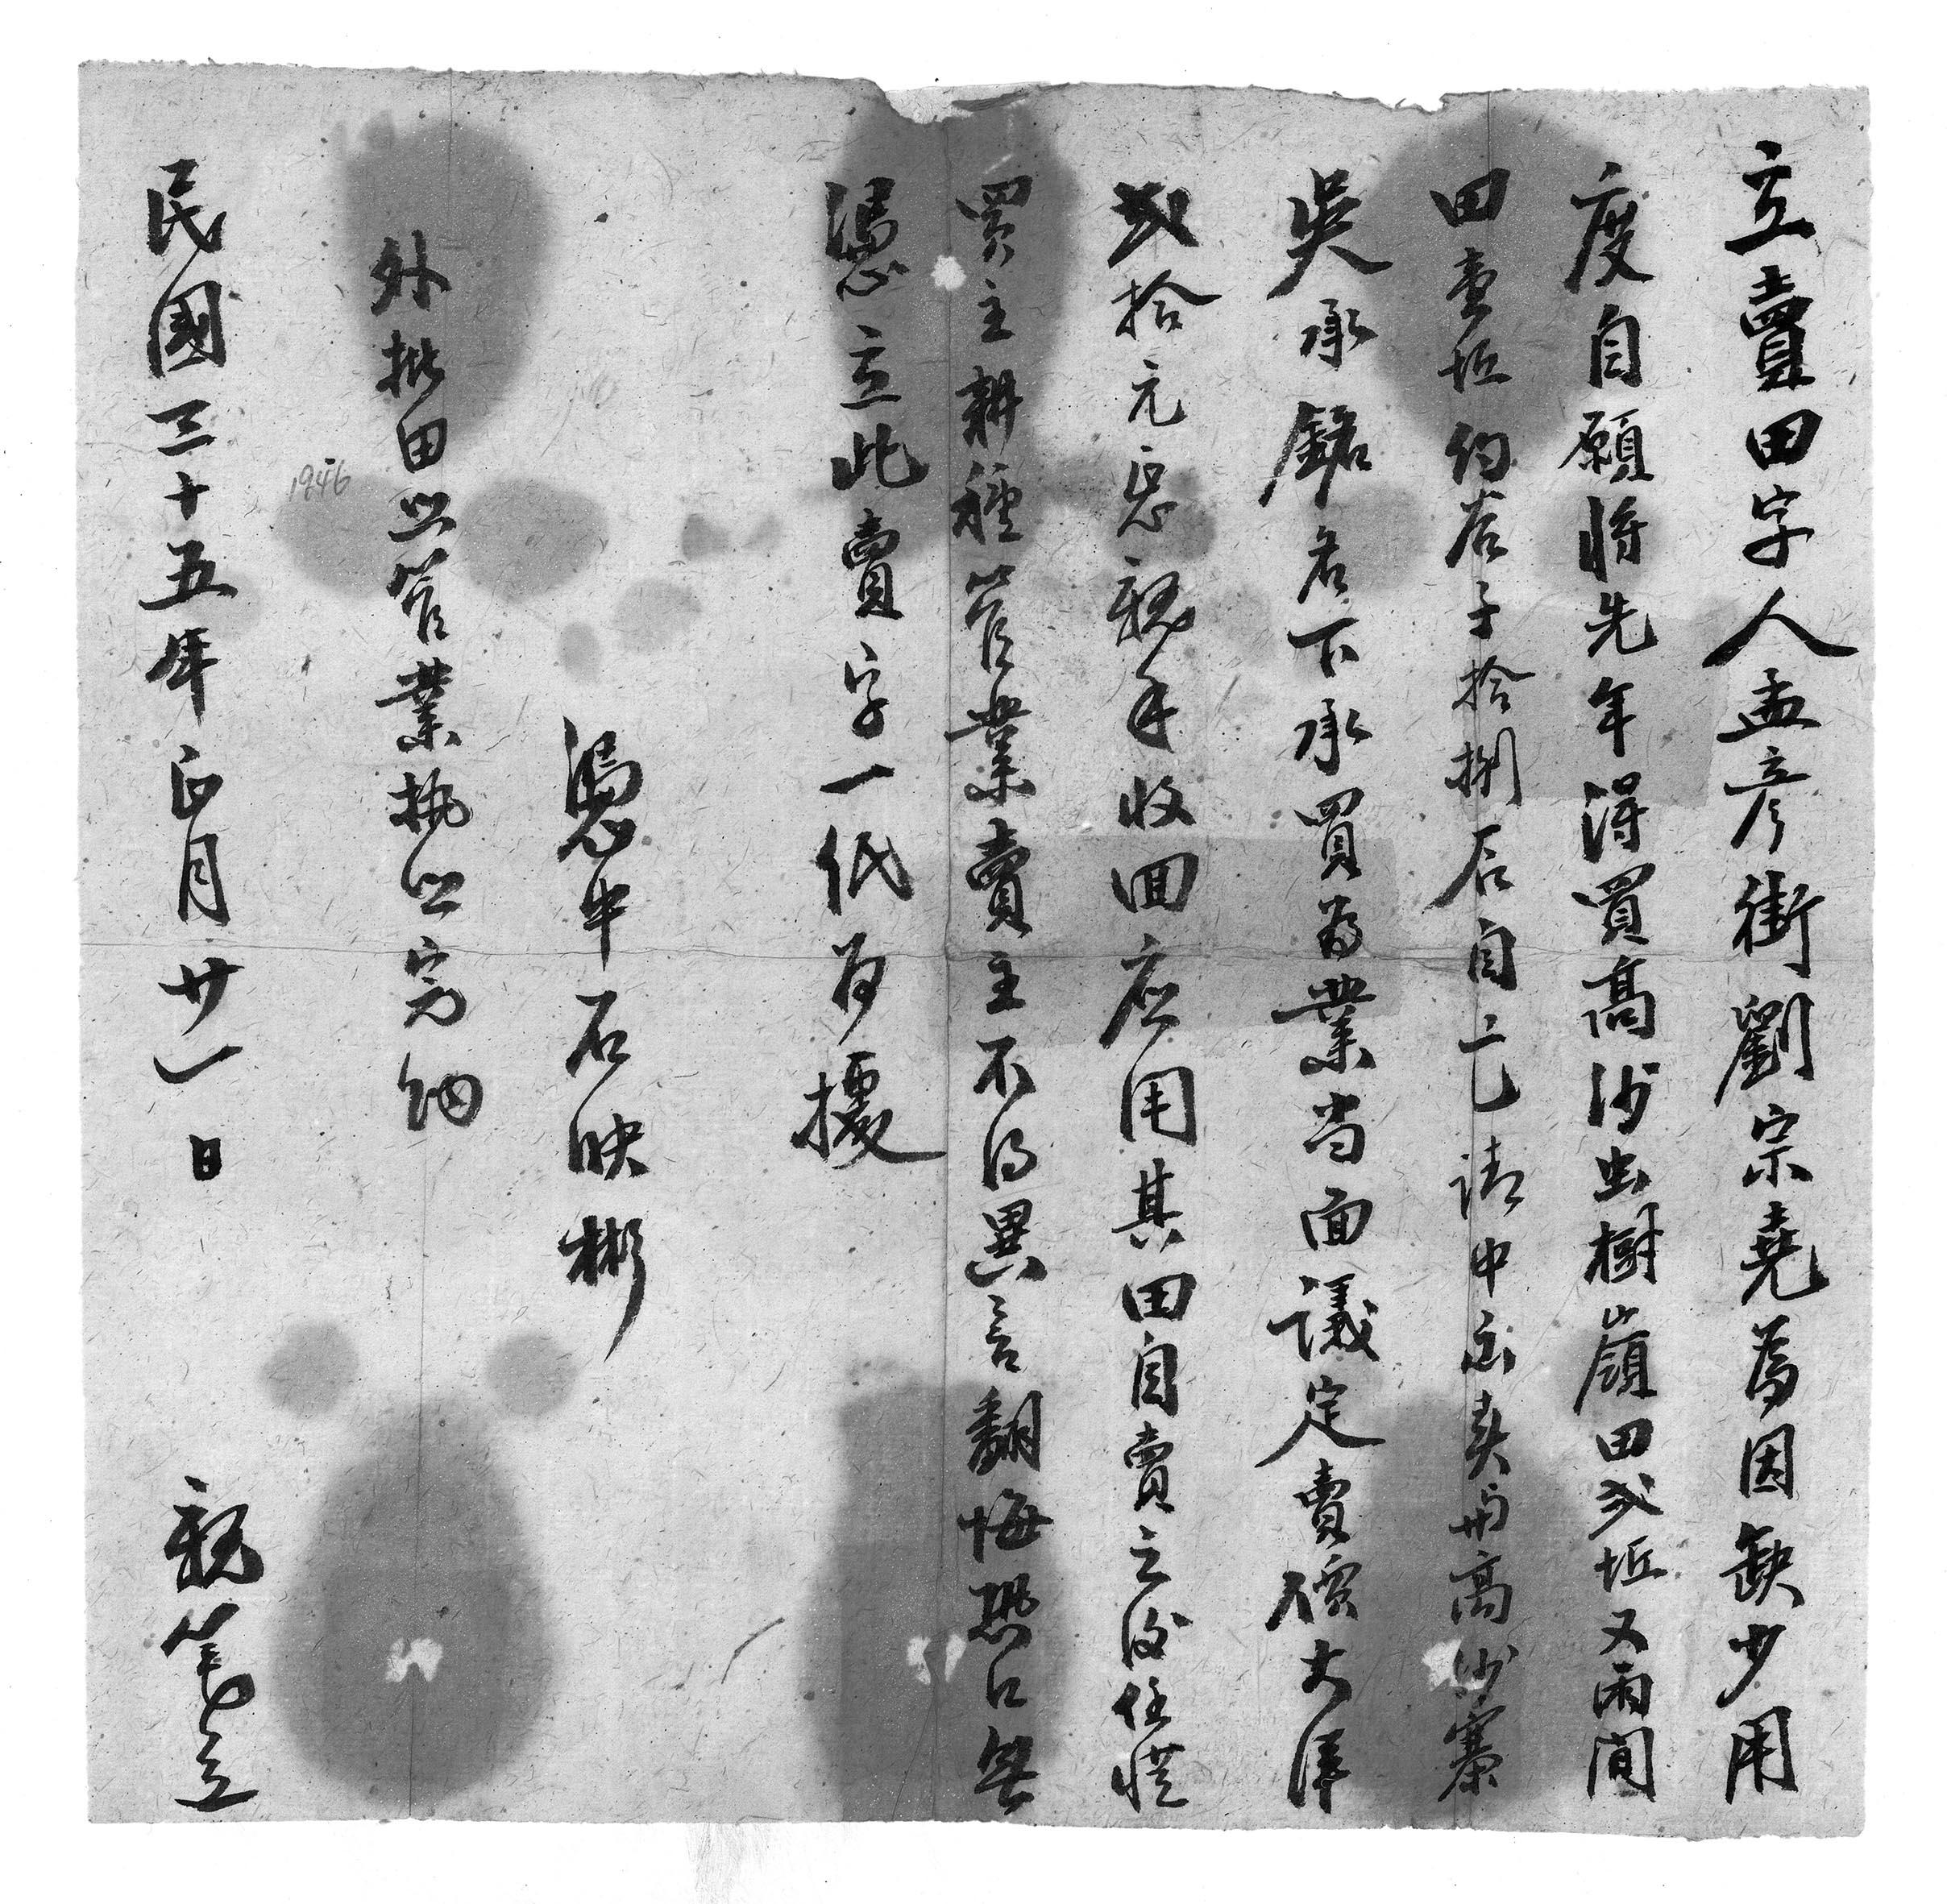 立賣田字人孟彦衝劉宗堯為因缺少用
度自願將先年得買高沙虫樹嶺田弍坵又兩間
田壹坵約谷子拾捌石自己請中出卖與高沙寨
吳承鋸名下承買為業当面議定賣價大洋
弍拾元正親手收囬应用其田自賣之後任憑
買主耕種管業賣主不得異言翻悔恐口無
憑立此賣字一紙為據
憑中石映彬
外批田照管業執照完納
1946
民國三十五年正月廿一日 親笔立